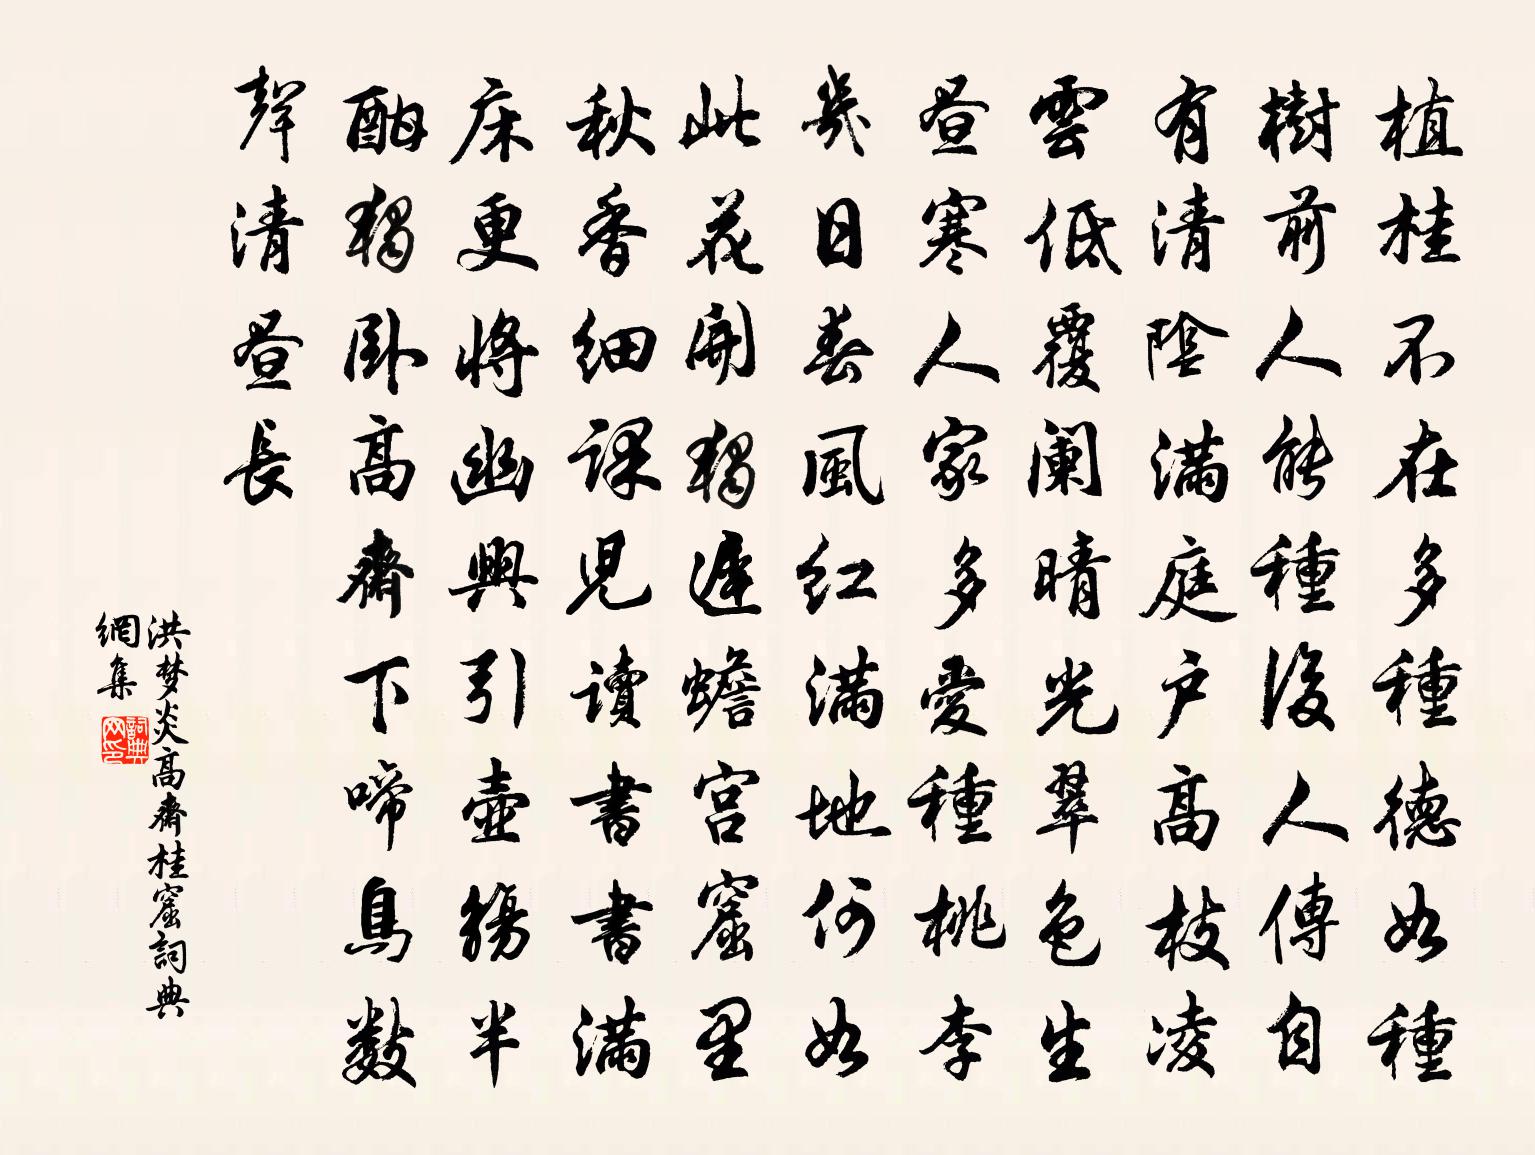 植桂不在多種德如種
樹前人能種後人傳自
有清陰滿庭户高枝凌
雲低覆闌晴光翠色生
昼寒人家多愛種桃李
幾日春風红滿地何如
此花開獨遲蟾宫窟里
秋香细課児讀書書滿
床更將幽興引壺觴半
酣獨卧高齋下啼鳥数
聲清昼長
洪梦炎高齋桂窟詞典
網集
詞典
网印